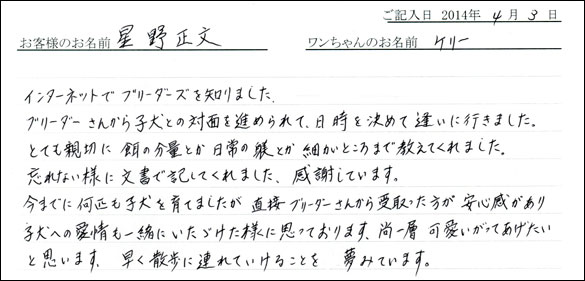 ご記入日 2014年 4月 3日
お客様のお名前 星野正文 ワンちゃんのお名前 ケリー
インターネットで ブリーダーズを知りました.
ブリーダーさんから子犬との対面を進められて、日時を決めて逢いに行きました。
とても親切に 餌の分量とか 日常の躾とか 細かいところまで教えてくれました。
忘れない様に文書で記してくれました、感謝しています。
今までに何匹も子犬を育てましたが 直接ブリーダーさんから受取った方が 安心感があり
子犬への愛情も一緒にいたゞけた様に思っております、尚一層 可愛いがってあげたい
と思います、早く散歩に連れていけることを 夢みています。